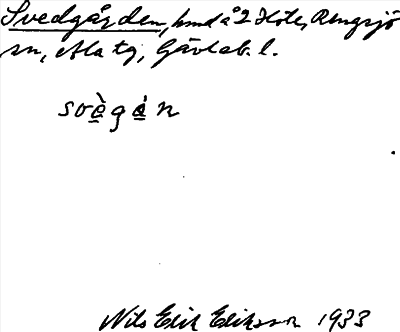 Svedgården, hmd å 2 Höle, Rengsjö
sn, Ala tg, Gävleb. l.
svègán
Nils Erik Eriksson 1933